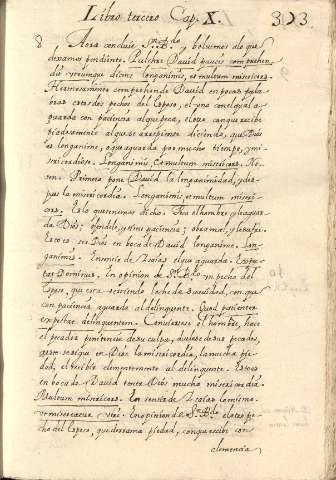 Libro tercero Cap. X. 303
8 Aora concluie S.n B.do bolvimos alo que
dexamos pendiente. Pulchre David paucis comprehen
dit utrumque dicens longanimis, et multum misericors.
Hermosamente comprehende David en pocas pala
bras estos dos pechos del Esposo, el uno con el qual a
guarda con paciencia al que peca, el otro con que recibe
piadosamente al que se arrepiente diciendo, que Dios
es longanimo, o que aguarda por mucho tiempo, y mi
sericordioso. Longanimis, et multum misericors. No
ten. Primero pone David la longanimidad, y des
pues la misericordia. Longanimis, et multum miseri
cors. Esto que tenemos dicho. Peca el hombre, y le aguar
da Dios, ofendele, y tiene paciencia,
Esto es ser Dios en boca de David longanimo. Lon
ganimis. En sentir de Isaias el que aguarda. Expec
tat Dominus. En opinion de S.n B.do un pecho del
Esposo, que esta vertiendo leche de suavidad, con que
con paciencia aguarda al delinquente. Quod patienter
expectat delinquentem. Convierte se el hombre, hace
el pecador penitencia de su culpa, duelese de sus pecados,
aqui se sigue en Dios la misericordia, la mucha pie
dad, el recibir clementemente al delinquente. Esto es
en boca de David tener Dios mucha misericordia.
Multum misericors. En sentir de Isaias lo mismo
ut misereatur vestri. En opinion de S.n B.do el otro pe
cho del Esposo, que derrama piedad, con que recibe con
clemencia